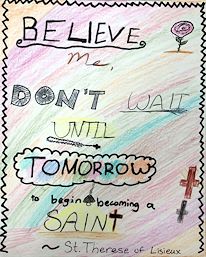 BELIEVE
Me,
DON'T WAIT
UNTIL
TOMORROW
to begin becoming a
SAINT
~ St. Therese of Lisieux